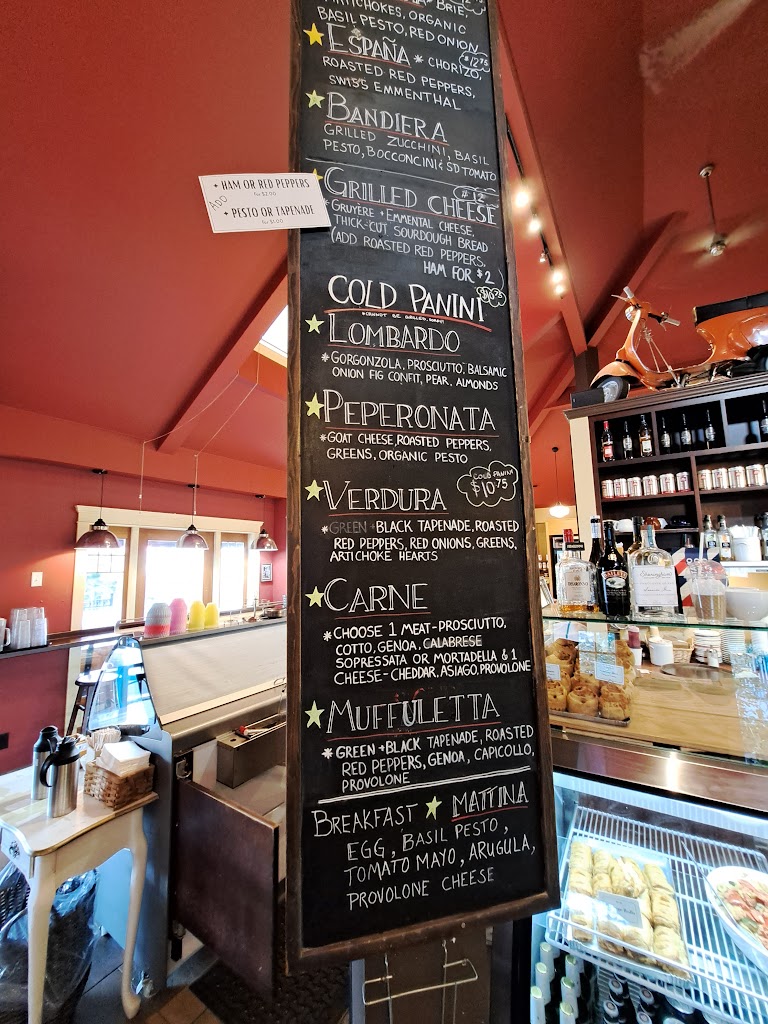 BRIE,
ARTICHOKES, ORGANIC
BASIL PESTO, RED ONION
ESPAÑA * CHORIZO,
$12.75
ROASTED RED PEPPERS,
SWISS EMMENTHAL
BANDIERA
GRILLED ZUCCHINI, BASIL
PESTO, BOCCONCINI & SD TOMATO
ADD
+ HAM OR RED PEPPERS
for $2.00
+ PESTO OR TAPENADE
for $1.00
GRILLED CHEESE
$12
*GRUYÈRE + EMMENTAL CHEESE,
THICK-CUT SOURDOUGH BREAD
(ADD ROASTED RED PEPPERS,
HAM FOR $2)
COLD PANINI
$10.75
*CANNOT BE GRILLED, SORRY!
LOMBARDO
*GORGONZOLA, PROSCIUTTO, BALSAMIC
ONION FIG CONFIT, PEAR, ALMONDS
PEPERONATA
*GOAT CHEESE, ROASTED PEPPERS,
GREENS, ORGANIC PESTO
COLD PANINI
$10.75
VERDURA
*GREEN + BLACK TAPENADE, ROASTED
RED PEPPERS, RED ONIONS, GREENS,
ARTICHOKE HEARTS
CARNE
*CHOOSE 1 MEAT-PROSCIUTTO,
COTTO, GENOA, CALABRESE
SOPRESSATA OR MORTADELLA & 1
CHEESE-CHEDDAR, ASIAGO, PROVOLONE
MUFFULETTA
*GREEN + BLACK TAPENADE, ROASTED
RED PEPPERS, GENOA, CAPICOLLO,
PROVOLONE
BREAKFAST MATTINA
EGG, BASIL PESTO,
TOMATO MAYO, ARUGULA,
PROVOLONE CHEESE